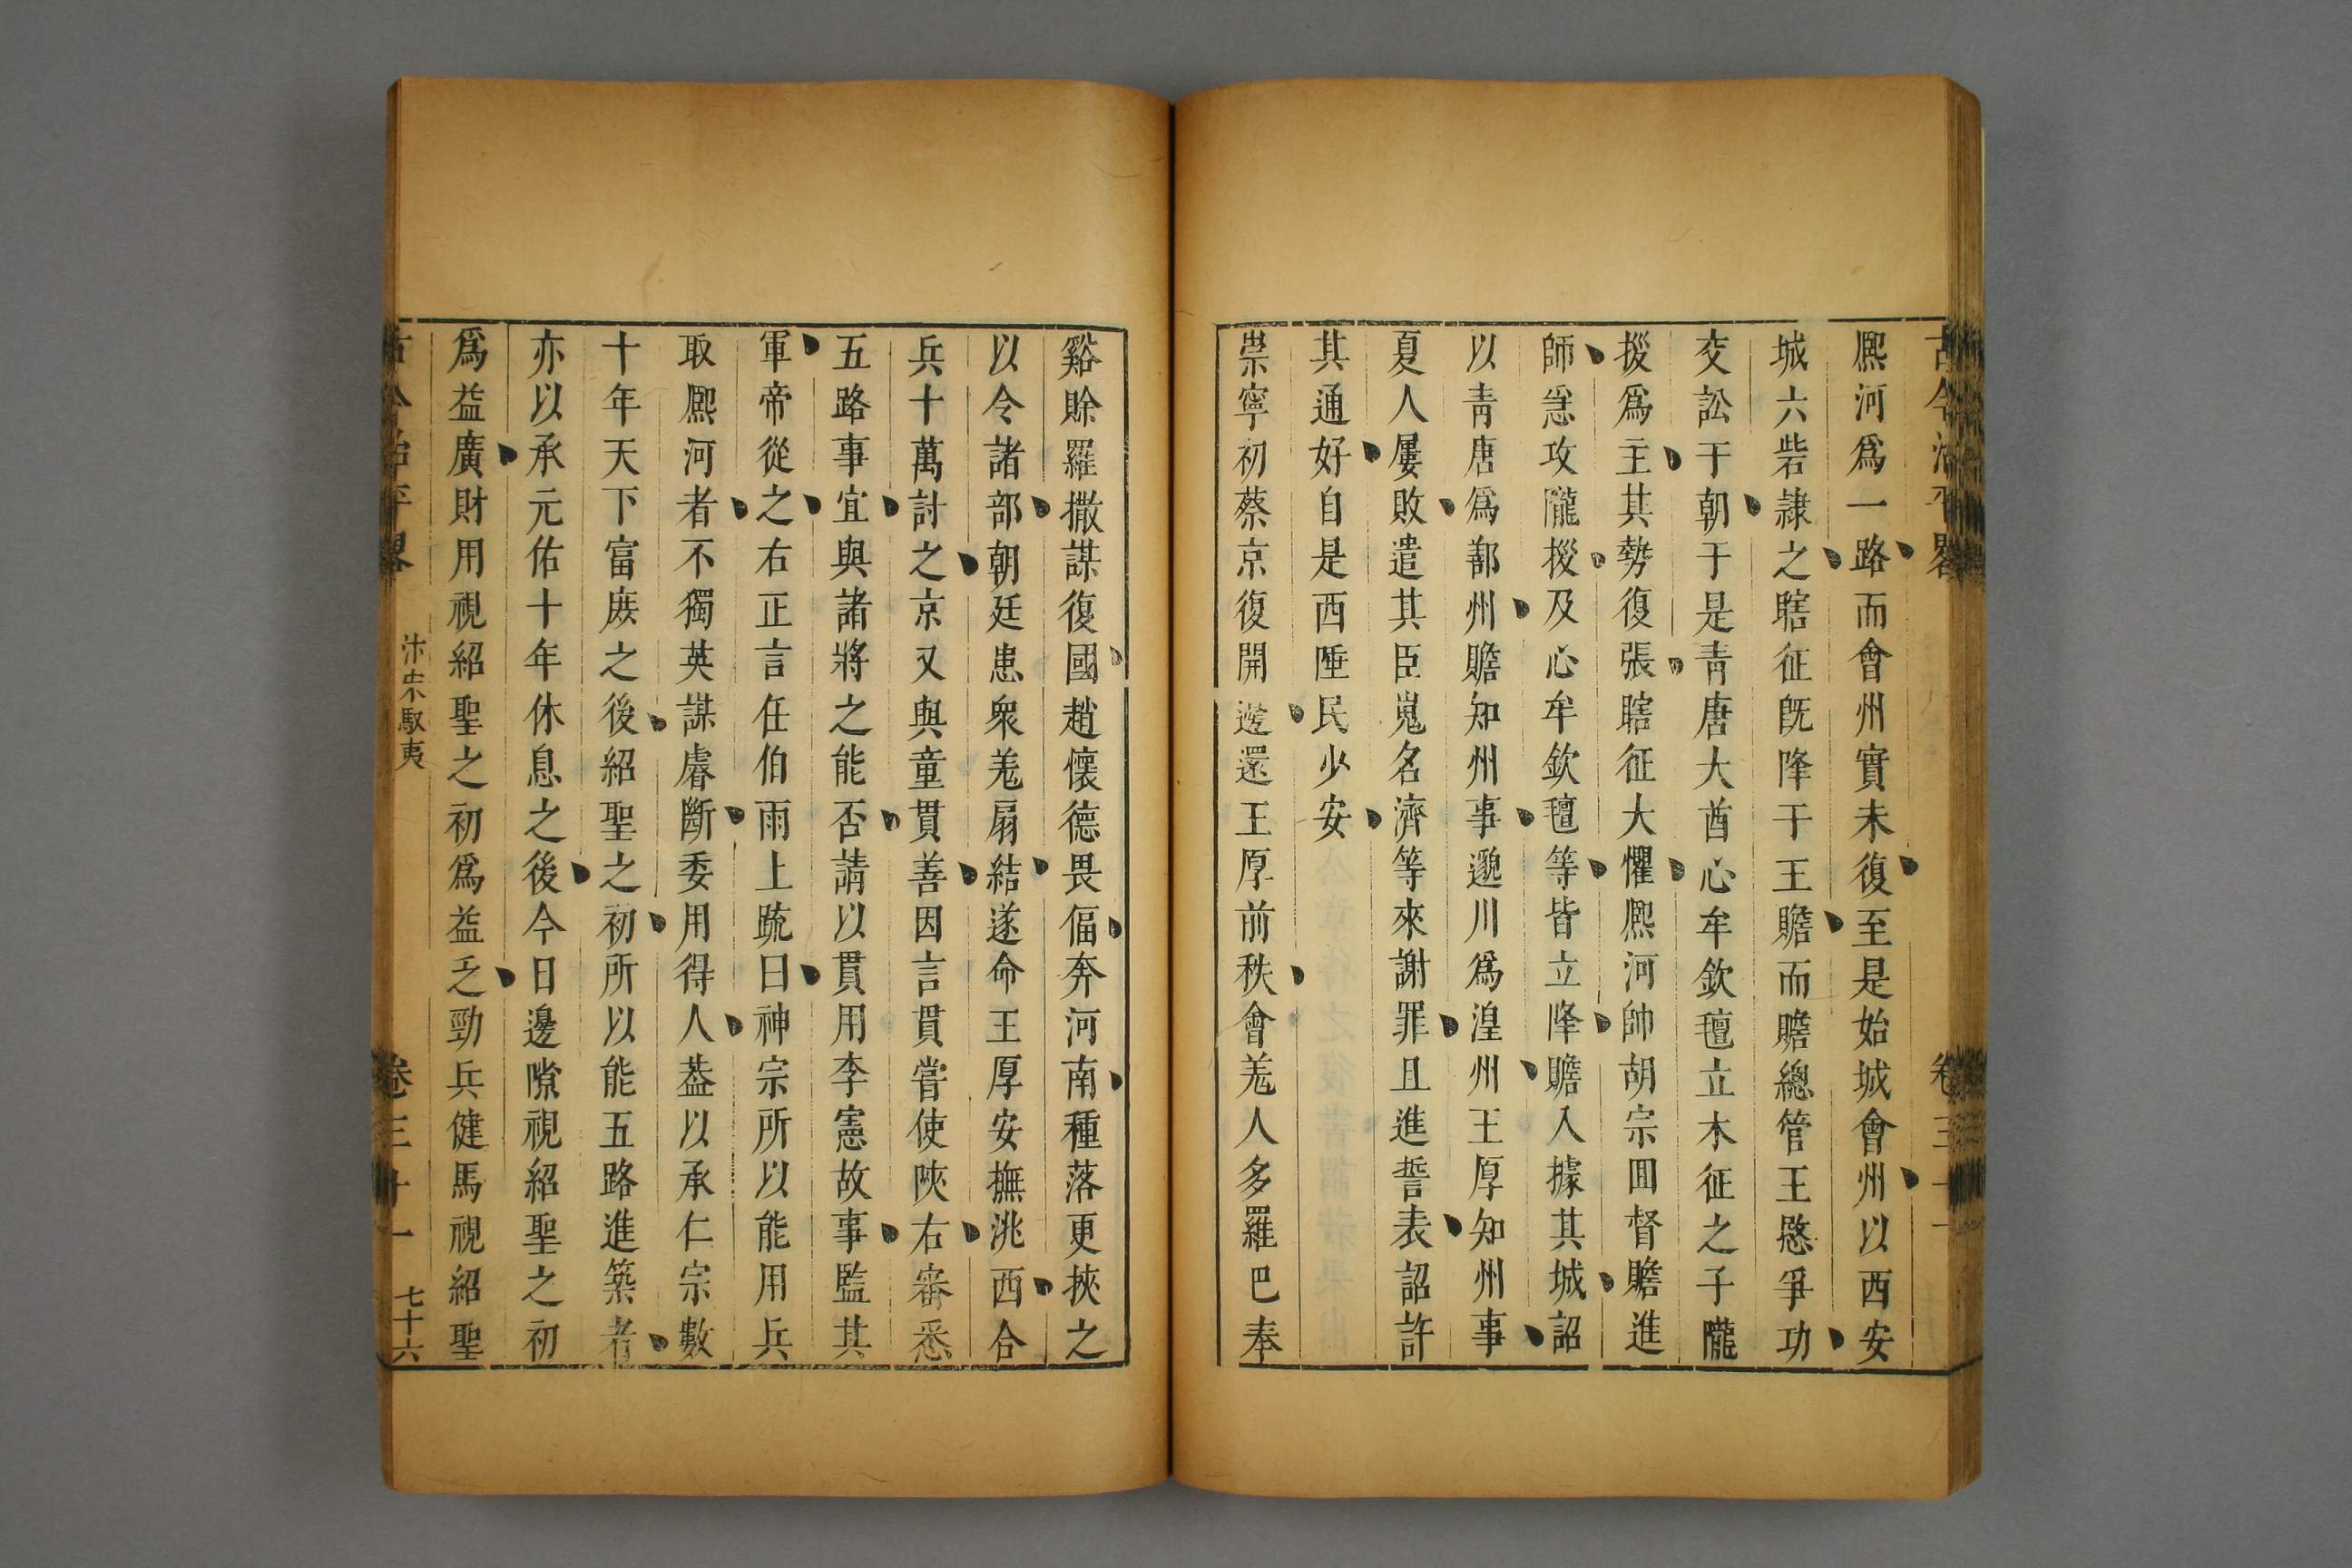 古今治平畧
卷三十一
熈河爲一路而會州實未復至是始城會州以西安
城六砦隷之瞎征旣降于王贍而贍總管王愍爭功
交訟于朝于是靑唐大酋心牟欽氊立木征之子隴
拶爲主其勢復張瞎征大懼熈河帥胡宗囬督贍進
師急攻隴拶及心牟欽氊等皆立降贍入據其城詔
以靑唐爲鄯州贍知州事邈川爲湟州王厚知州事
夏人屢敗遣其臣嵬名濟等來謝罪且進誓表詔許
其通好自是西陲民少安
崇寧初蔡京復開邊還王厚前秩會羌人多羅巴奉
谿賒羅撒謀復國趙懷德畏偪奔河南種落更挾之
以令諸部朝廷患衆羌扇結遂命王厚安撫洮西合
兵十萬討之京又與童貫善因言貫嘗使陜右審悉
五路事宜與諸將之能否請以貫用李憲故事監其
軍帝從之右正言任伯雨上疏曰神宗所以能用兵
取熈河者不獨英謀睿斷委用得人葢以承仁宗數
十年天下富庶之後紹聖之初所以能五路進築者
亦以承元佑十年休息之後今日邊隙視紹聖之初
爲益廣財用視紹聖之初爲益乏勁兵健馬視紹聖
古今治平畧
汴宋馭夷
卷三十一
七十六